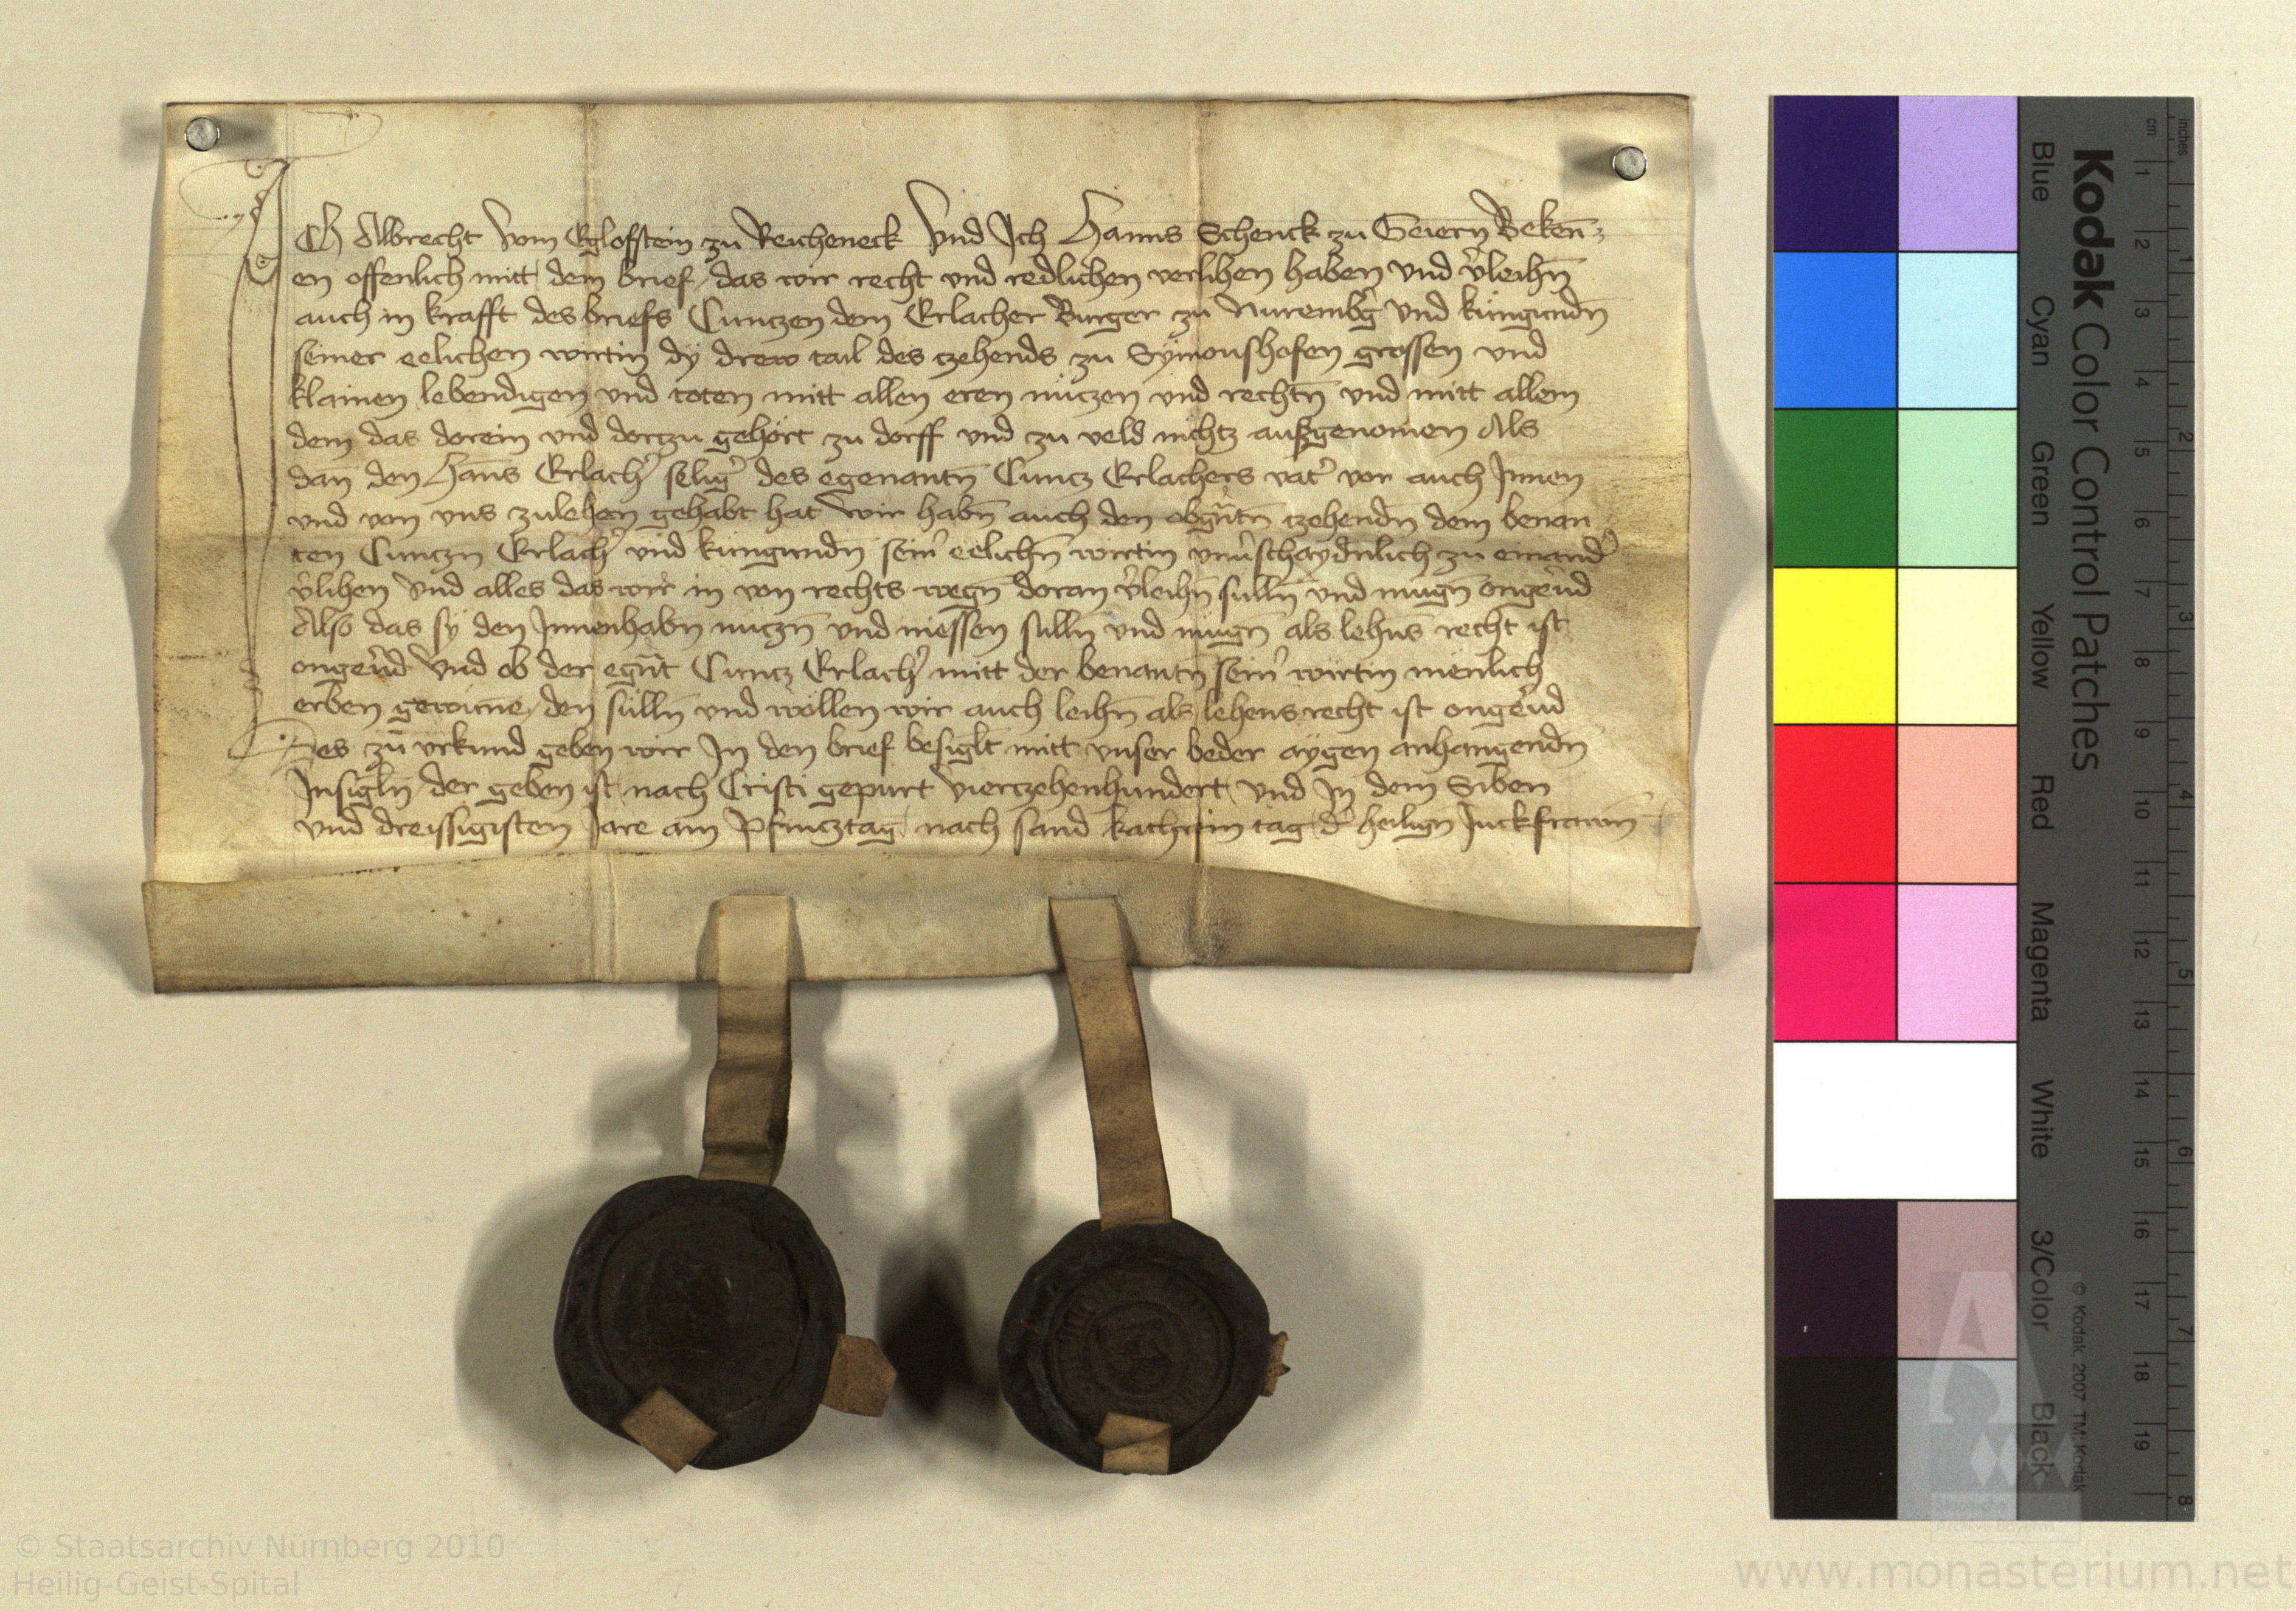 Ich Albrecht vom Eglofstein zu Reicheneck Und Ich Hanns Schenck zu Geiern Bekenn̄
en offenlich mitt dem brief, das wir recht und redlichen verlihen haben vnd v̓leihn̄
auch in krafft des briefs Cunczen dem Erlacher Burger zu Nurembg̓ vnd kungundn̄
seiner eelichen wirtin dy drew tail des zehends zu Sÿmonshofen grossen vnd
klainen lebendigen vnd toten mitt allen eren nuczen vnd rechtn̄ vnd mitt allem
dem das dorein vnd dorzu gehort zu dorff vnd zu veld nichtz außgenomen Als
dan̄ den Han̄s Erlach̓ selig̓ des egenantn̄ Cuncz Erlachers vat̓ vor auch Innen
vnd von vns zulehen gehabt hat Wir habn̄ auch den obgn̄tn̄ zehendn̄ dem benan
ten Cunczn̄ Erlach̓ vnd kungundn̄ sein̓ eelichn̄ wirtin vnu̓schaydnlich zu einand̓
v̓lihen Vnd alles das wir in von rechts wegn̄ doran v̓leihn̄ sulln̄ vnd mugn̄ ongeu̓d
Also das sÿ den Innenhabn̄ nuczn̄ vnd niessen sulln̄ vnd mugn̄ als lehns̄ recht ist
ongeu̓d Vnd ob der egn̄t Cuncz Erlach̓ mitt der benantn̄ sein̓ wirtin menlich
erben gewinne, den sülln̄ vnd wöllen wir auch leihn̄ als lehens recht ist ongeu̓d
Des zu vrkund geben wir In den brief besiglt mitt vnser beder aygen anhangendn̄
Insigln̄ der geben ist nach Cristi gepurt Vierzehenhundert vnd In dem Siben
vnd dreissigisten Jare am Pfincztag nach sand kathrein tag d̓ heilign̄ Juckfrawn̄
Kodak Color Control Patches
Blue Cyan Green Yellow Red Magenta White 3/Color Black
© Kodak, 2007 TM: Kodak
inches 1 2 3 4 5 6 7 8
cm 1 2 3 4 5 6 7 8 9 10 11 12 13 14 15 16 17 18 19
© Staatsarchiv Nürnberg 2010
Heilig-Geist-Spital
www.monasterium.net